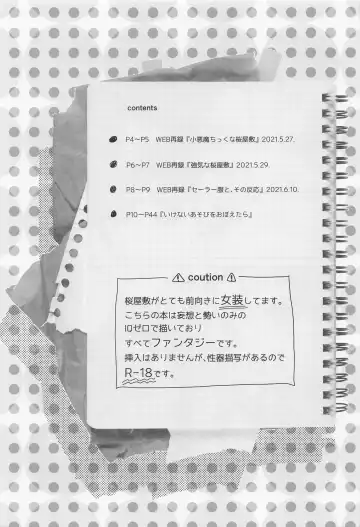 contents
P4〜P5 WEB再録『小悪魔ちっくな桜屋敷』2021.5.27.
P6〜P7 WEB再録『強気な桜屋敷』2021.5.29.
P8〜P9 WEB再録『セーラー服と、その反応』2021.6.10.
P10〜P44『いけないあそびをおぼえたら』
coution
桜屋敷がとても前向きに女装してます。
こちらの本は妄想と勢いのみの
IQゼロで描いており
すべてファンタジーです。
挿入はありませんが、性器描写があるので
R-18です。